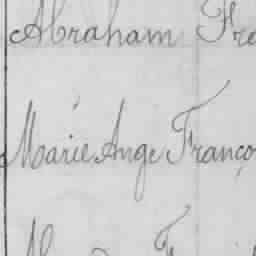 Abraham Fre
Marie Ange Franço